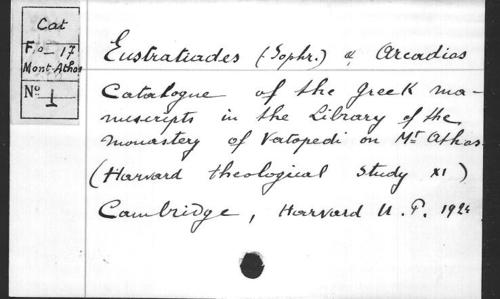 Cat
F.o-17
Mont-Athos
No 1
Eustratiades (Sophr.) & Arcadios
Catalogue of the Greek ma-
nuscripts in the Library of the
monastery of Vatopedi on Mt Athos.
(Harvard theological Study XI)
Cambridge, Harvard U.P. 1924